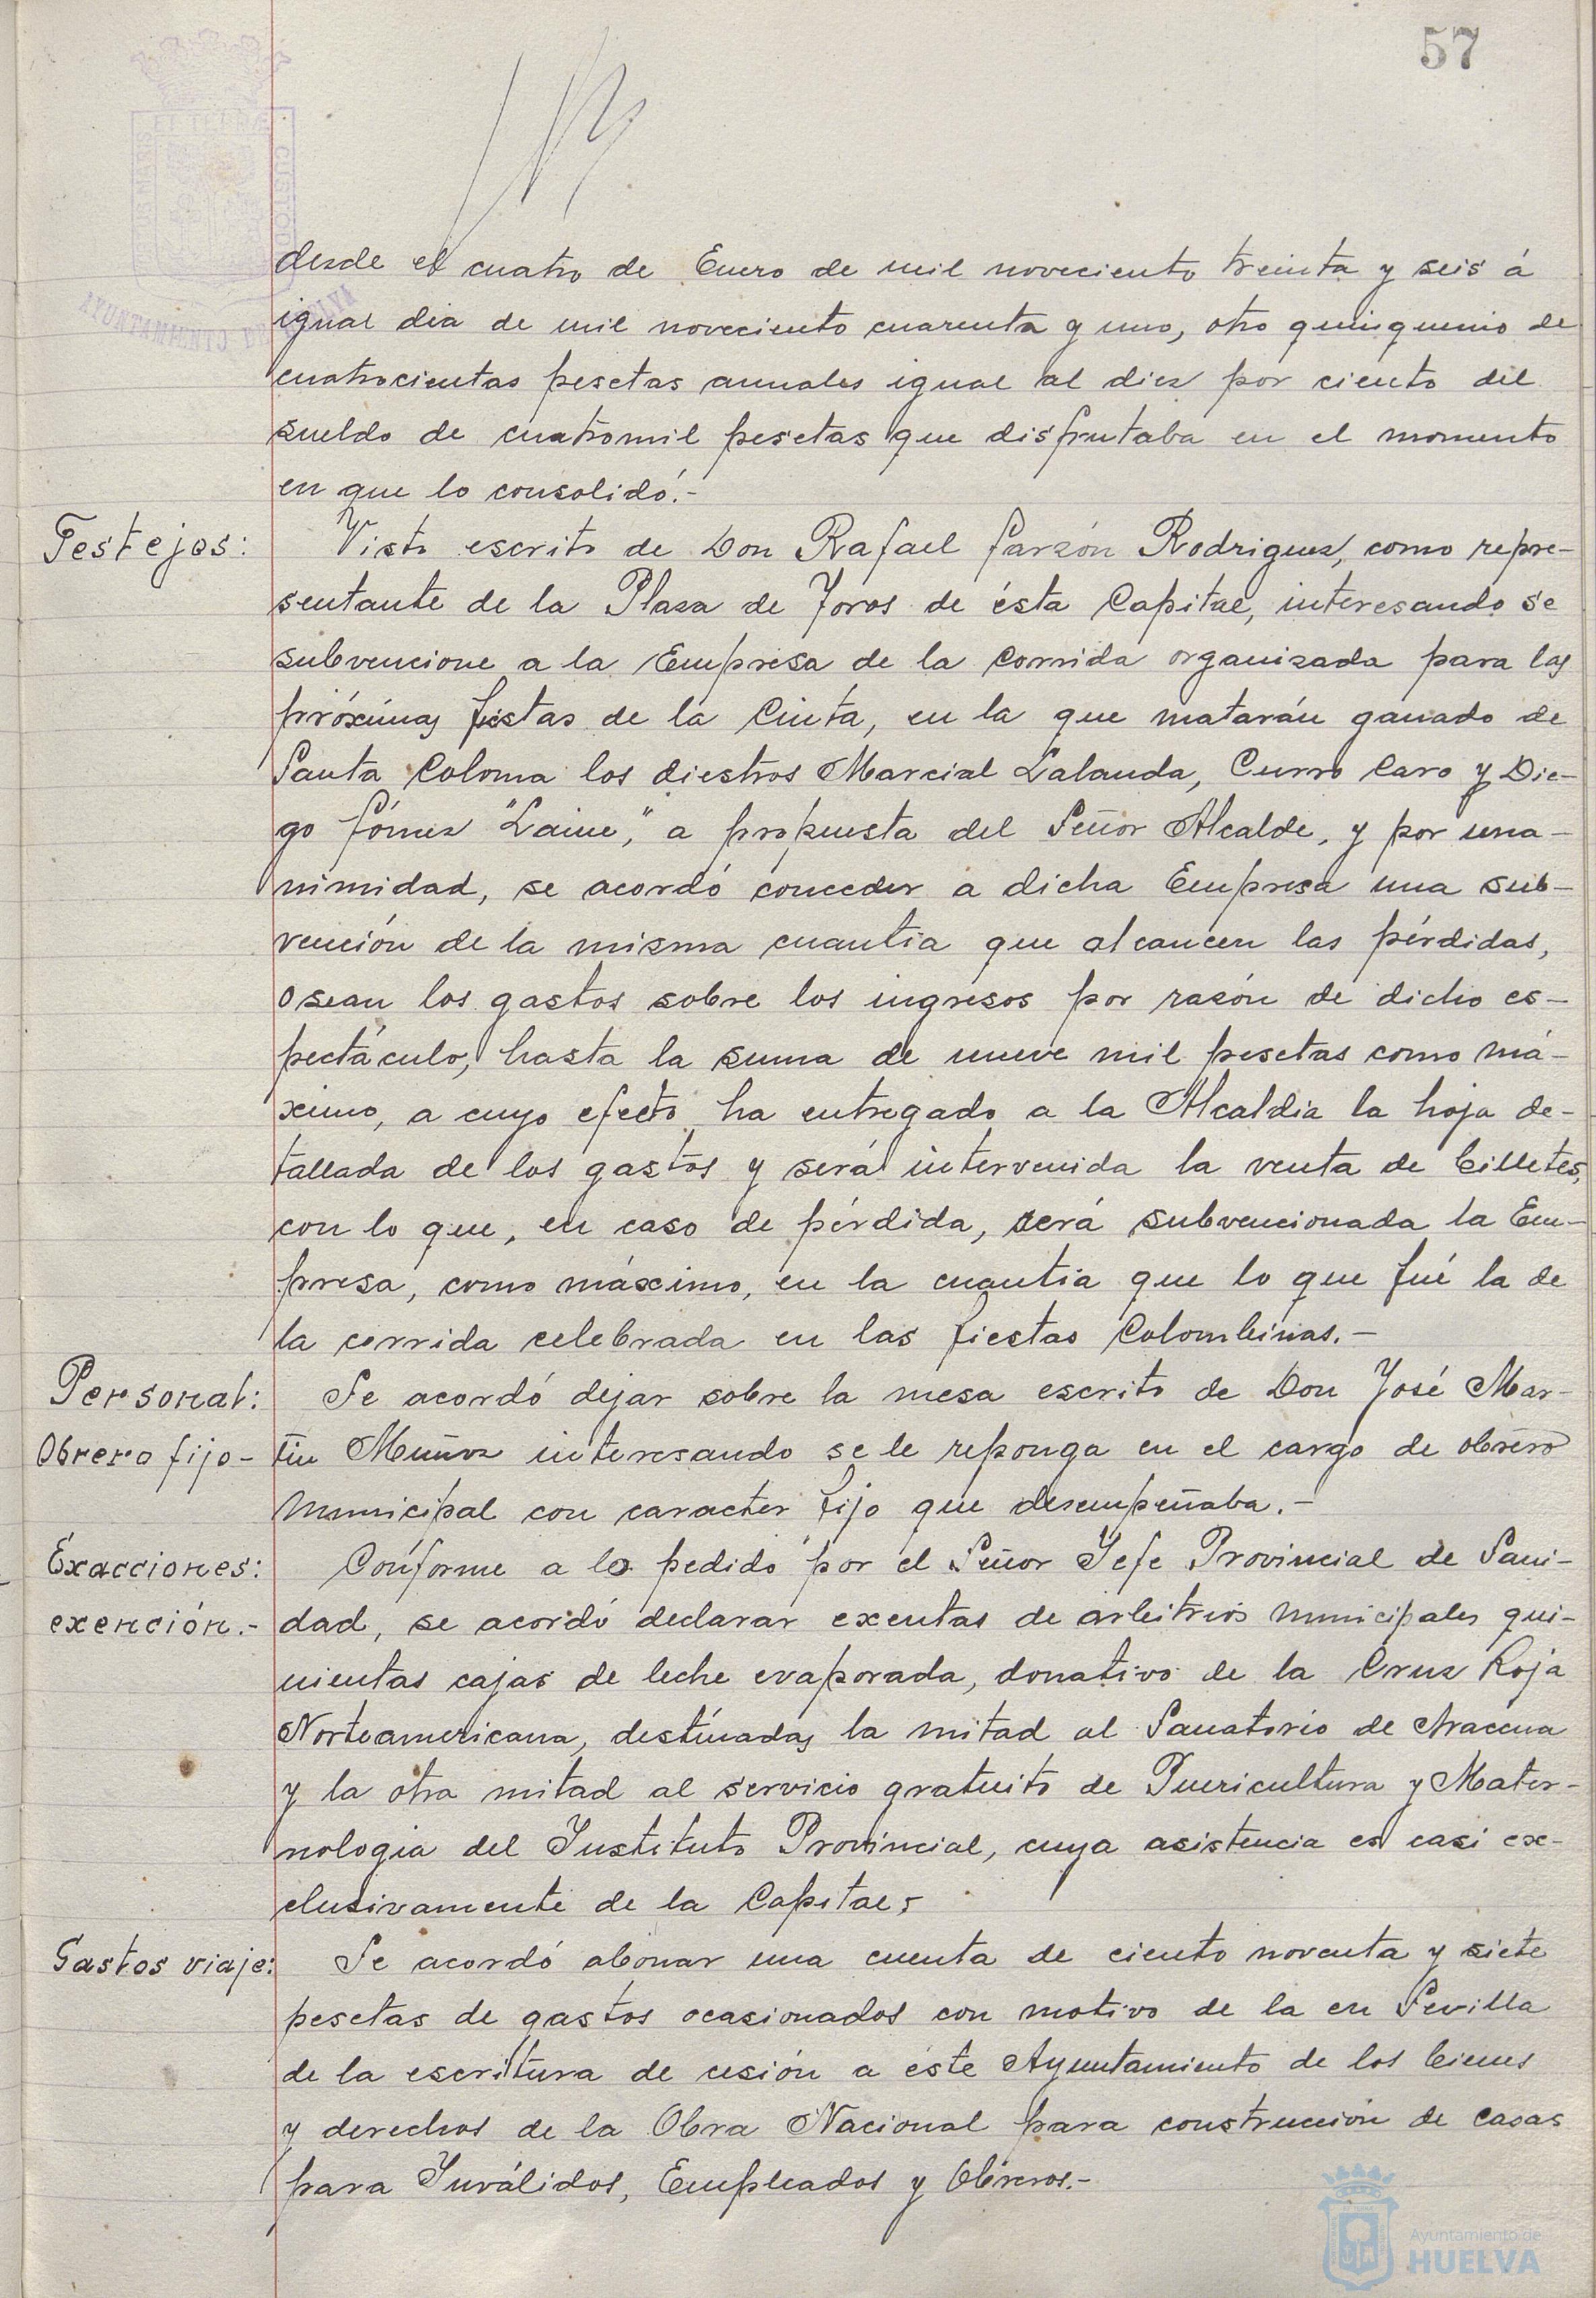 57
desde el cuatro de Enero de mil noveciento treinta y seis á
igual dia de mil noveciento cuarenta y uno, otro quinquenio de
cuatrocientas pesetas anuales igual al diez por ciento del
sueldo de cuatromil pesetas que disfrutaba en el momento
en que lo consolidó.-
Festejos: Visto escrito de Don Rafael Garzón Rodriguez, como repre-
sentante de la Plaza de Toros de ésta Capital, interesando se
subvencione a la Empresa de la Corrida organizada para las
próximas fiestas de la Cinta, en la que matarán ganado de
Santa Coloma los diestros Marcial Lalanda, Curro Caro y Die-
go Gómez "Laine", a propuesta del Señor Alcalde, y por una-
nimidad, se acordó conceder a dicha Empresa una sub-
vención de la misma cuantia que alcancen las pérdidas,
o sean los gastos sobre los ingresos por razón de dicho es-
pectáculo, hasta la suma de nueve mil pesetas como má-
ximo, a cuyo efecto ha entregado a la Alcaldia la hoja de-
tallada de los gastos y será intervenida la venta de billetes,
con lo que, en caso de pérdida, será subvencionada la Em-
presa, como máximo, en la cuantia que lo que fué la de
la corrida celebrada en las fiestas Colombinas.-
Personal: Se acordó dejar sobre la mesa escrito de Don José Mar-
Obrero fijo- tin Muñoz interesando se le reponga en el cargo de obrero
municipal con caracter fijo que desempeñaba.-
Exacciones: Conforme a lo pedido por el Señor Jefe Provincial de Sani-
exención.- dad, se acordó declarar exentas de arbitrios municipales qui-
nientas cajas de leche evaporada, donativo de la Cruz Roja
Norteamericana, destinadas la mitad al Sanatorio de Aracena
y la otra mitad al servicio gratuito de Puericultura y Mater-
nologia del Instituto Provincial, cuya asistencia es casi ex-
clusivamente de la Capital.-
Gastos viaje: Se acordó abonar una cuenta de ciento noventa y siete
pesetas de gastos ocasionados con motivo de la en Sevilla
de la escritura de cesión a éste Ayuntamiento de los bienes
y derechos de la Obra Nacional para construccion de casas
para Inválidos, Empleados y Obreros.-
Ayuntamiento de
HUELVA